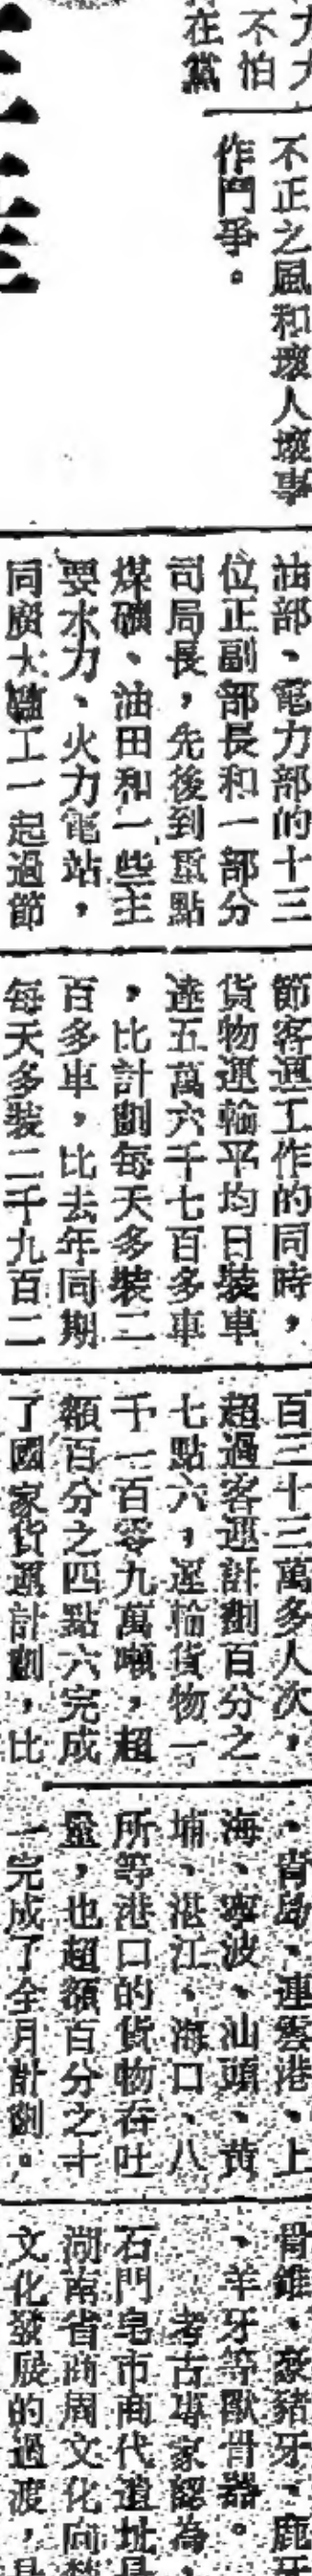 不怕
在黨
不正之風和壞人壞事
作鬥爭。
油部、電力部的十三
位正副部長和一部分
司局長，先後到重點
煤礦、油田和一些主
要水力、火力電站，
同廣大職工一起過節
節客運工作的同時，
貨物運輸平均日裝車
達五萬六千七百多車
，比計劃每天多裝二
百多車，比去年同期
每天多裝二千九百二
百三十三萬多人次，
超過客運計劃百分之
七點六，運輸貨物一
千一百零九萬噸，超
額百分之四點六完成
了國家貨運計劃，比
、青島、連雲港、上
海、寧波、汕頭、黃
埔、湛江、海口、八
所等港口的貨物吞吐
量，也超額百分之十
一完成了全月計劃。
骨錐、豪豬牙、鹿牙
、羊牙等獸骨器。
考古專家認為，
石門皂市商代遺址是
湖南省商周文化向楚
文化發展的過渡，是